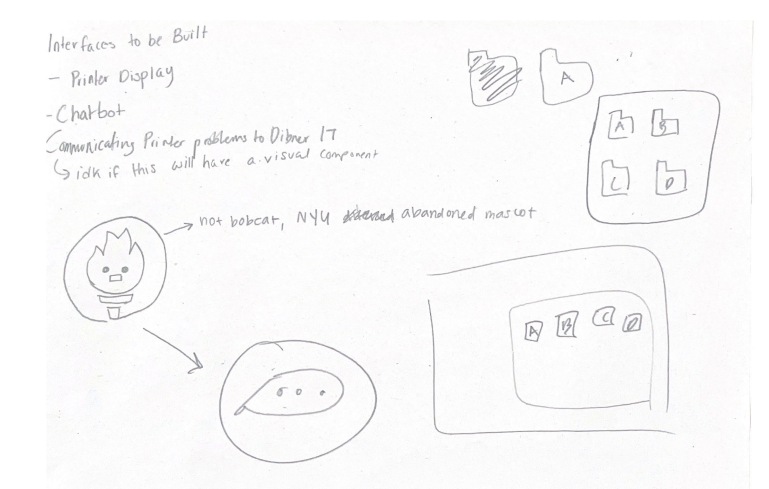 Interfaces to be Built
- Printer Display
- Chatbot
Communicating Printer problems to Dibner IT
↳ idk if this will have a visual component
→ not bobcat, NYU abandoned mascot
A
A B
C D
A B C D